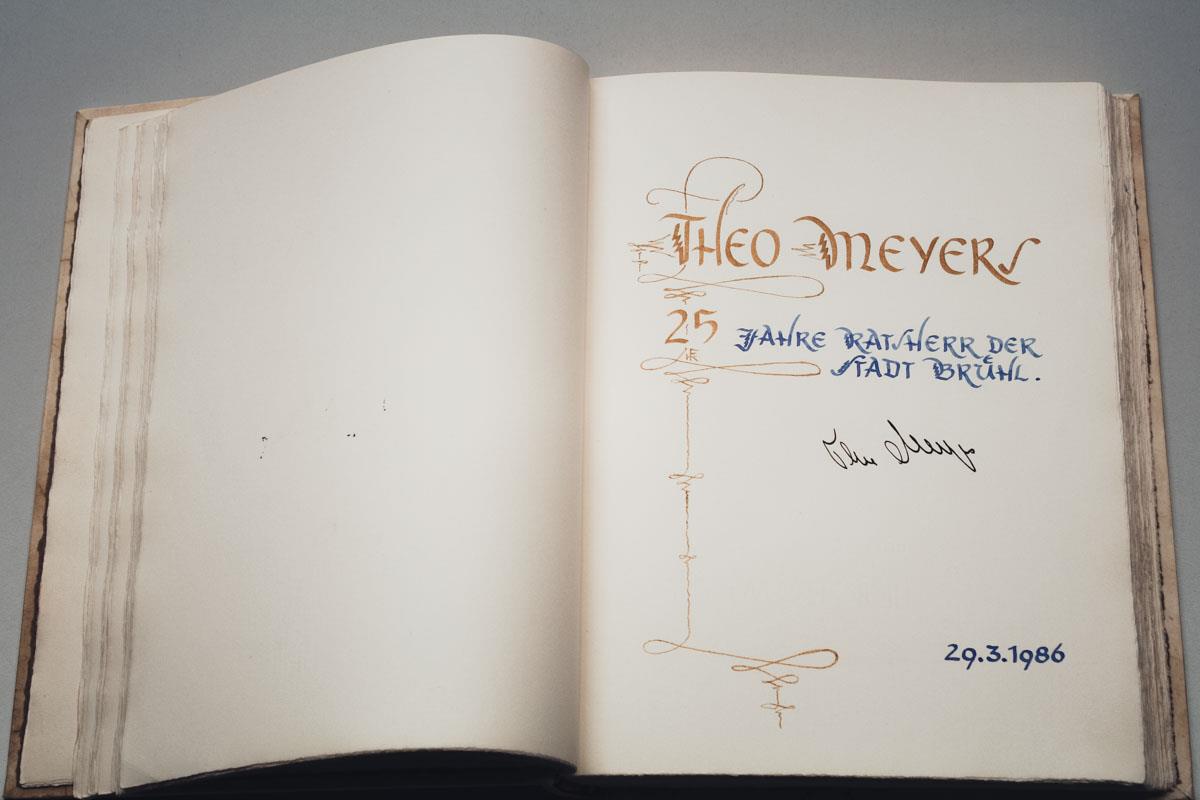 THEO MEYERS
25 JAHRE RATSHERR DER
STADT BRÜHL.
Theo Meyers
29.3.1986